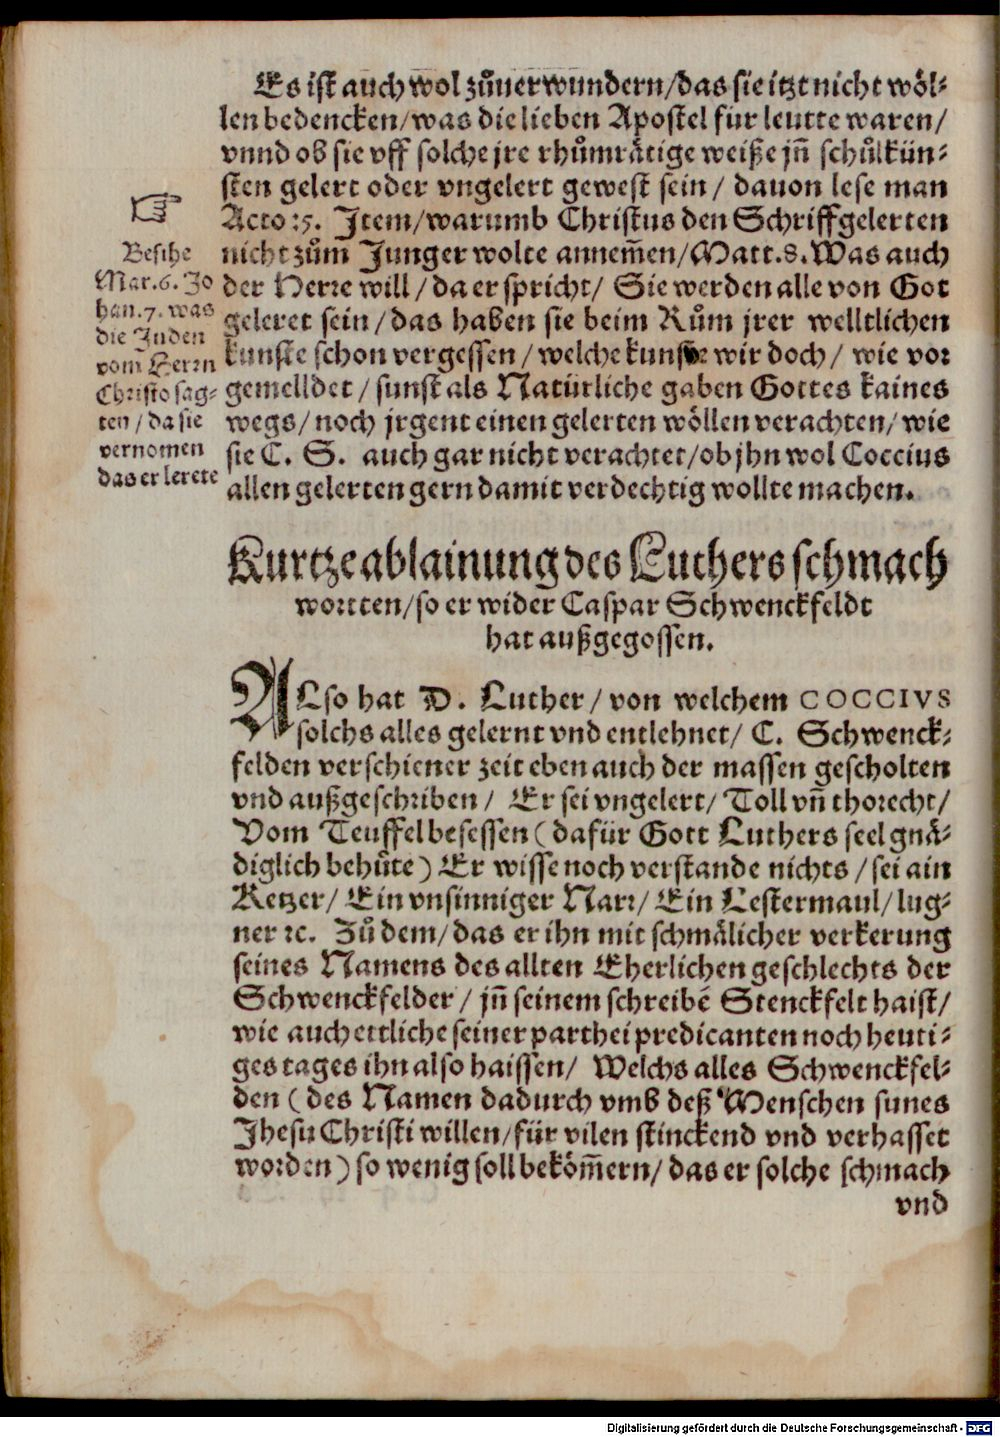 Es ist auch wol zůuerwundern/das sie itzt nicht wöl-
len bedencken/was die lieben Apostel für leutte waren/
vnnd ob sie vff solche jre rhůmrätige weiße jñ schůlkün-
sten gelert oder vngelert gewest sein/ dauon lese man
Acto 25. Item/warumb Christus den Schriffgelerten
nicht zům Junger wolte annem̃en/Matt.8.Was auch
der Herre will/da er spricht/ Sie werden alle von Got
geleret sein/das haben sie beim Rům jrer welltlichen
kunste schon vergessen/welche kunste wir doch/ wie vor
gemelldet/sunst als Natürliche gaben Gottes kaines
wegs/noch jrgent einen gelerten wöllen verachten/wie
sie C. S. auch gar nicht verachtet/ob jhn wol Coccius
allen gelerten gern damit verdechtig wollte machen.
☞
Besihe
Mar.6. Jo
han.7. was
die Juden
vom Herrn
Christo sag-
ten/da sie
vernomen
das er lerete
Kurtze ablainung des Luthers schmach
wortten/so er wider Caspar Schwenckfeldt
hat außgegossen.
ALso hat D. Luther/von welchem COCCIVS
solchs alles gelernt vnd entlehnet/ C. Schwenck-
felden verschiener zeit eben auch der massen gescholten
vnd außgeschriben/ Er sei vngelert/Toll vñ thorecht/
Vom Teuffel besessen (dafür Gott Luthers seel gnä-
diglich behůte) Er wisse noch verstande nichts/sei ain
Ketzer/Ein vnsinniger Narr/Ein Lestermaul/lug-
ner ꝛc. Zů dem/das er ihn mit schmälicher verkerung
seines Namens des allten Eherlichen geschlechts der
Schwenckfelder/jñ seinem schreibẽ Stenckfelt haist/
wie auch ettliche seiner parthei predicanten noch heuti-
ges tages ihn also haissen/ Welchs alles Schwenckfel-
den (des Namen dadurch vmb deß Menschen sunes
Jhesu Christi willen/für vilen stinckend vnd verhasset
worden) so wenig soll beköm̃ern/das er solche schmach
vnd
Digitalisierung gefördert durch die Deutsche Forschungsgemeinschaft - DFG